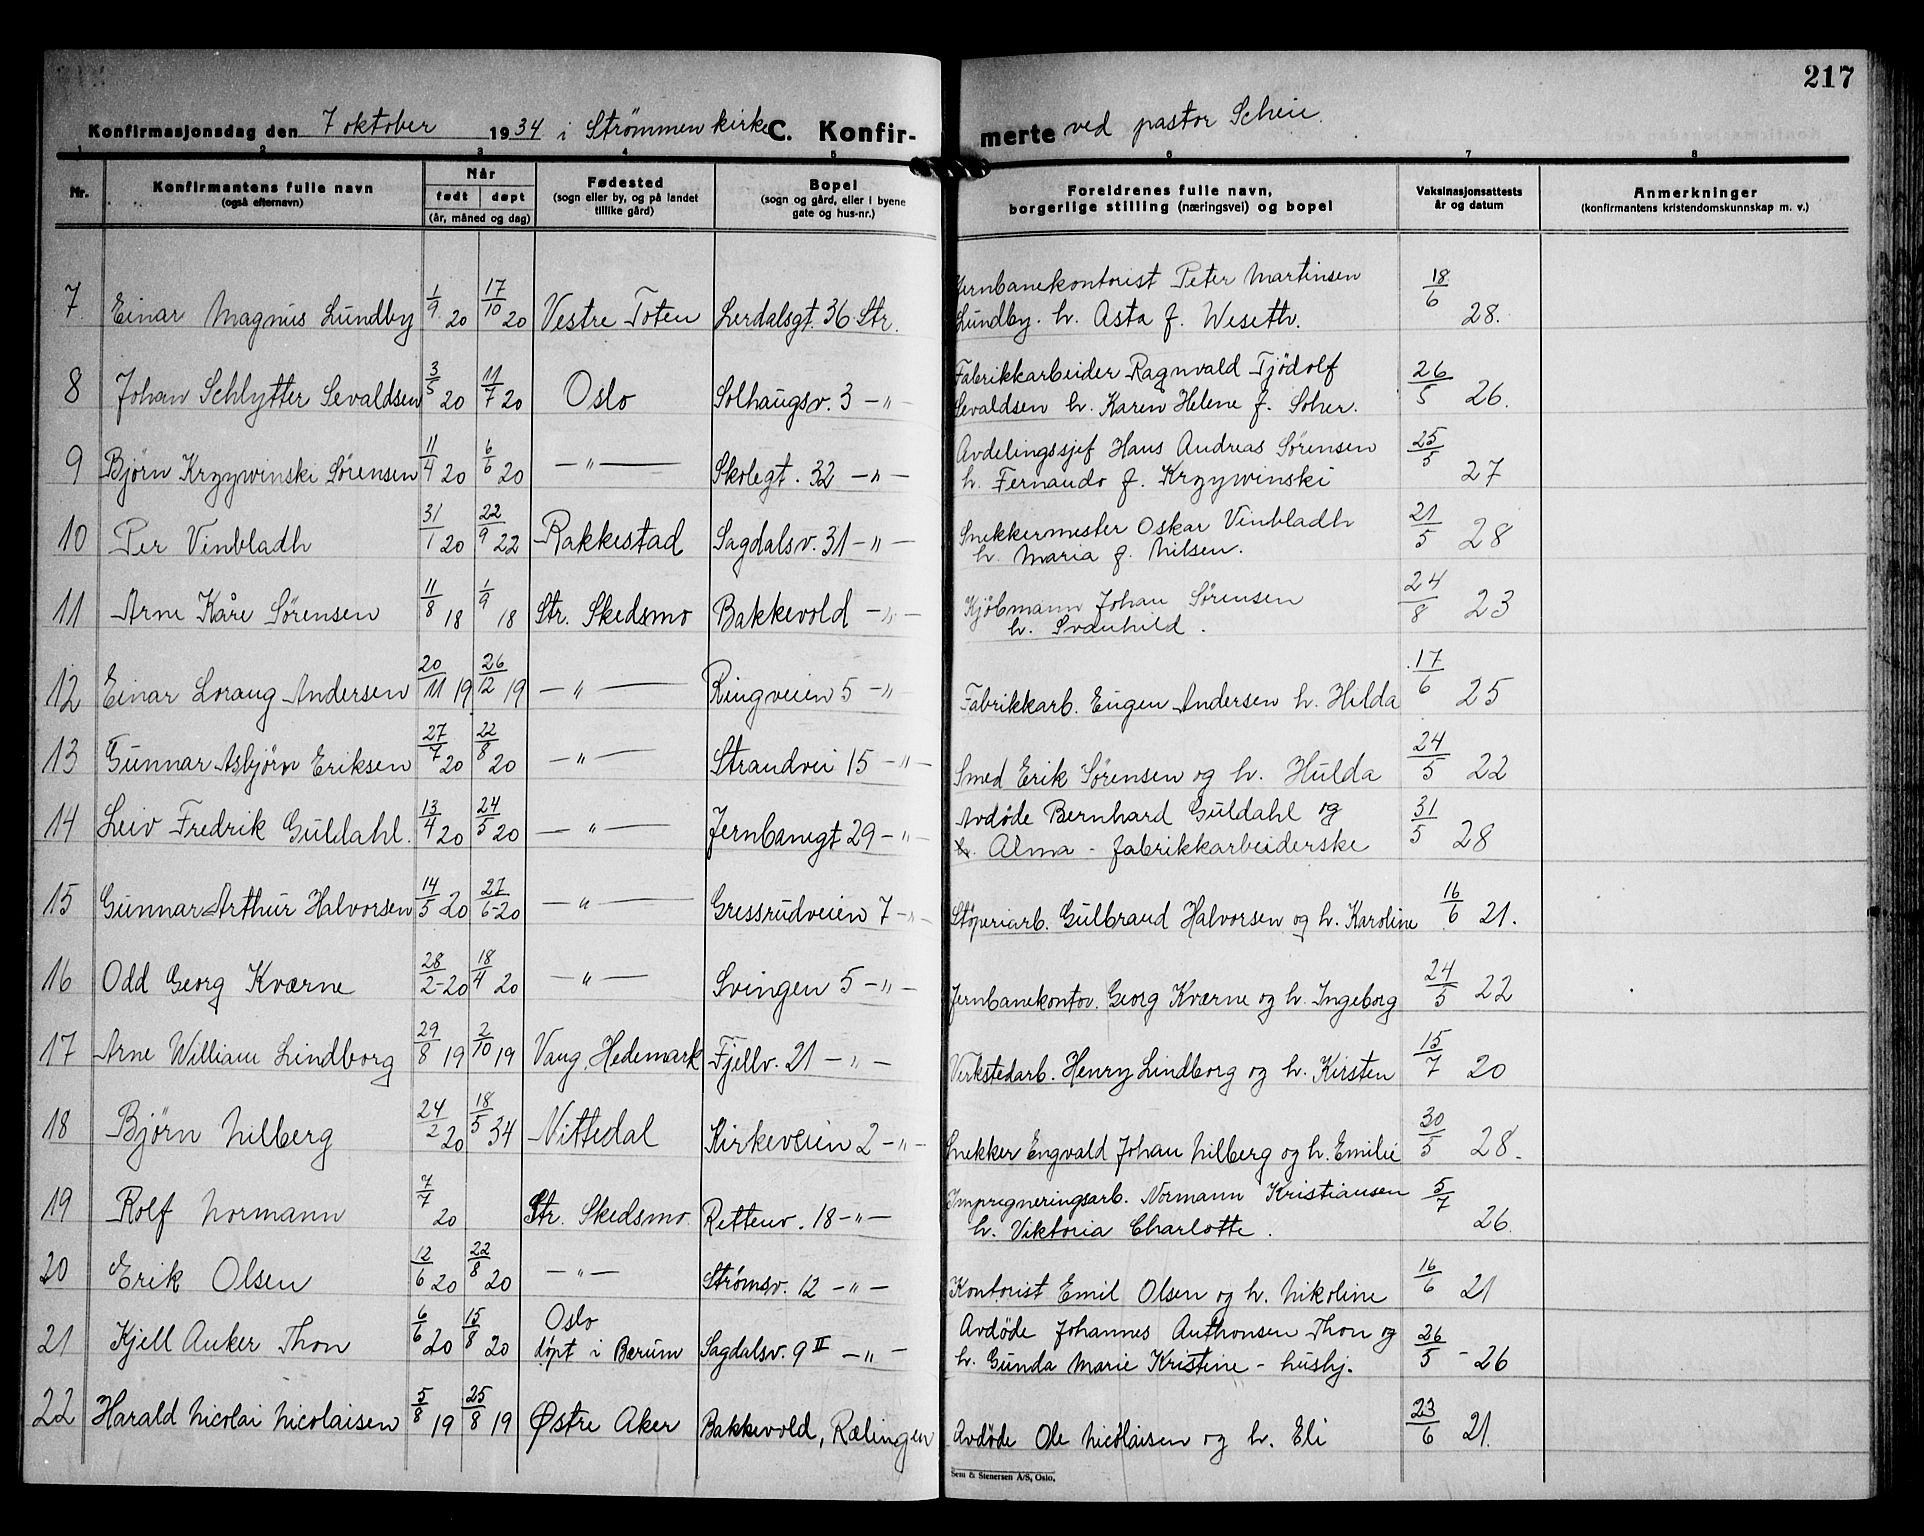 217
Konfirmasjonsdag den 7 oktober 1934 i Strømmen kirke C. Konfir- merte ved pastor Scheie.
1 2 3 4 5 6 7 8
Nr. Konfirmantens fulle navn (også efternavn) Når født døpt (år, måned og dag) Fødested (sogn eller by, og på landet tillike gård) Bopel (sogn og gård, eller i byene gate og hus-nr.) Foreldrenes fulle navn, borgerlige stilling (næringsvei) og bopel Vaksinasjonsattests år og datum Anmerkninger (konfirmantens kristendomskunnskap m. v.)
7 Einar Magnus Lundby 1/9 20 17/10 20 Vestre Toten Lerdalsgt. 36 Str. Jernbanekontorist Peter Martinsen 18/6 28.
Lundby. h. Asta f. Weseth.
8 Johan Schlytter Sevaldsen 3/5 20 11/7 20 Oslo Solhaugsv. 3 -"- Fabrikkarbeider Ragnvald Tjödolf 26/5 26.
Sevaldsen h. Karen Helene f. Soher.
9 Bjørn Krzywinski Sørensen 11/4 20 6/6 20 -"- Skolegt. 32 -"- Avdelingssjef Hans Andreas Sørensen 25/5 27
h. Fernando f. Krzywinski
10 Per Vinbladh 31/1 20 22/9 22 Rakkestad Sagdalsv. 31 -"- Snekkermester Oskar Vinbladh 21/5 28
h. Maria f. Nilsen.
11 Arne Kåre Sørensen 11/8 18 1/9 18 Str. Skedsmo Bakkevold -"- Kjöbmann Johan Sörensen 24/8 23
h. Svanhild.
12 Einar Loraug Andersen 20/11 19 26/12 19 -"- Ringveien 5 -" Fabrikkarb. Eugen Andersen h. Hilda 17/6 25
13 Gunnar Asbjørn Eriksen 27/7 20 22/8 20 -"- Strandvei 15 -"- Smed Erik Sørensen og h. Hulda 24/5 22
14 Leiv Fredrik Guldahl. 13/4 20 24/5 20 -"- Jernbanegt 29 -"- Avdöde Bernhard Guldahl og 31/5 28
h. Alma - fabrikkarbeiderske
15 Gunnar Arthur Halvorsen 14/5 20 27/6-20 -"- Gressrudveien 7 -"- Støperiarb. Gulbrand Halvorsen og h. Karoline 16/6 21.
16 Odd Georg Kværne 28/2-20 18/4 20 -"- Svingen 5 -"- Jernbanekontor. Georg Kværne og h. Ingeborg 24/5 22
17 Arne William Lindborg 29/8 19 2/10 19 Vang, Hedemark Fjellv. 21 -"- Verkstedarb. Henry Lindborg og h. Kirsten 15/7 20
18 Bjørn Nilberg 24/2 20 18/5 34 Nittedal Kirkeveien 2 -"- Snekker Engvald Johan Nilberg og h. Emilie 30/5 28.
19 Rolf Normann 7/7 20 Str. Skedsmo. Rettenv. 18 -"- Impregneringsarb. Normann Kristiansen 5/7 26.
h. Viktoria Charlotte.
20 Erik Olsen 12/6 20 22/8 20 -"- Strømsv. 12 -"- Kontorist Emil Olsen og h. Nikoline 16/6 21
21 Kjell Anker Thon 6/6 20 15/8 20 Oslo døpt i Bærum Sagdalsv. 9 II -"- Avdöde Johannes Anthonsen Thon og 26/5 - 26
h. Gunda Marie Kristine - hushj.
22 Harald Nicolai Nicolaisen 5/8 19 25/8 19 Østre Aker Bakkevold, Rælingen Avdöde Ole Nicolaisen og h. Eli 23/6 21.
Sem & Stenersen A/S, Oslo.